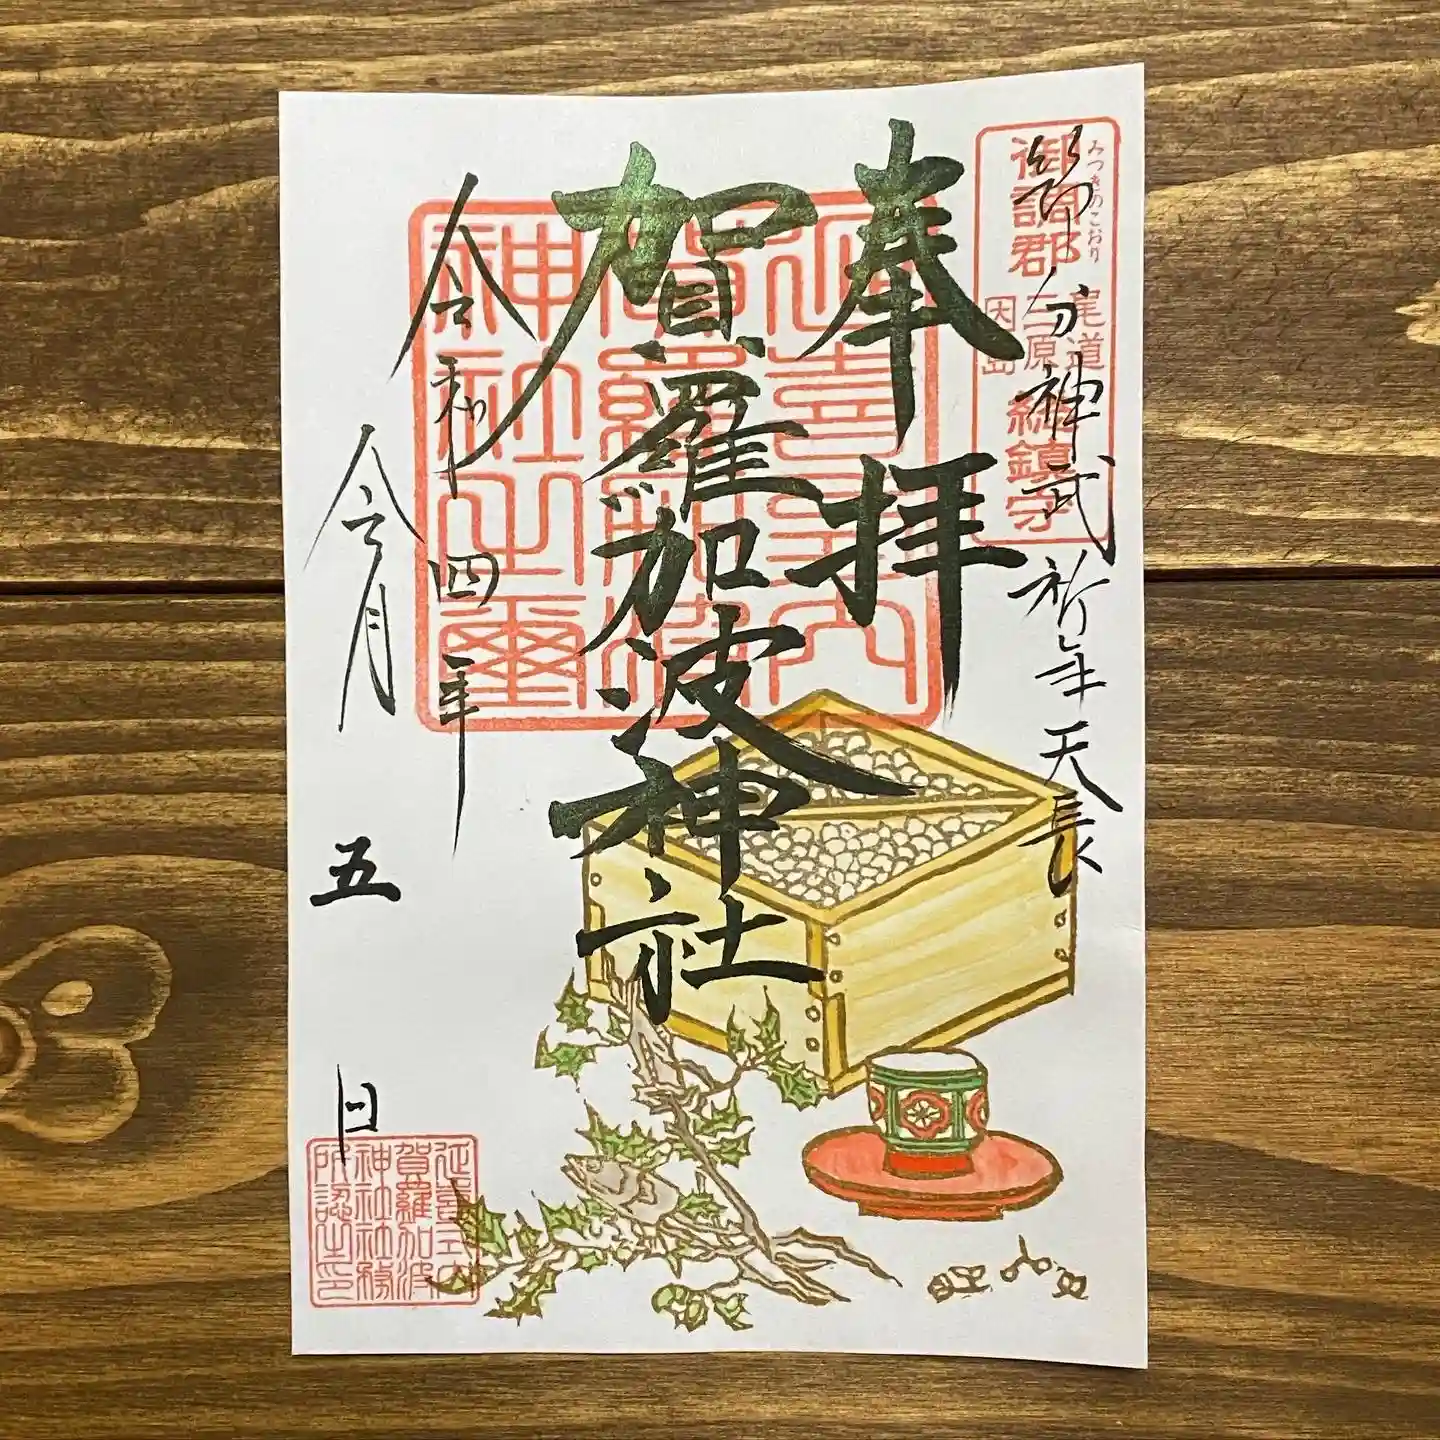 御調郡
みつきのこおり
尾道
三原
因島
総鎮守
神武祈年天長
奉拝
賀羅加波神社
延喜式内
賀羅加波
神社之璽
令和四年
令月
五
日
延喜式内
賀羅加波
神社社務
所認之印